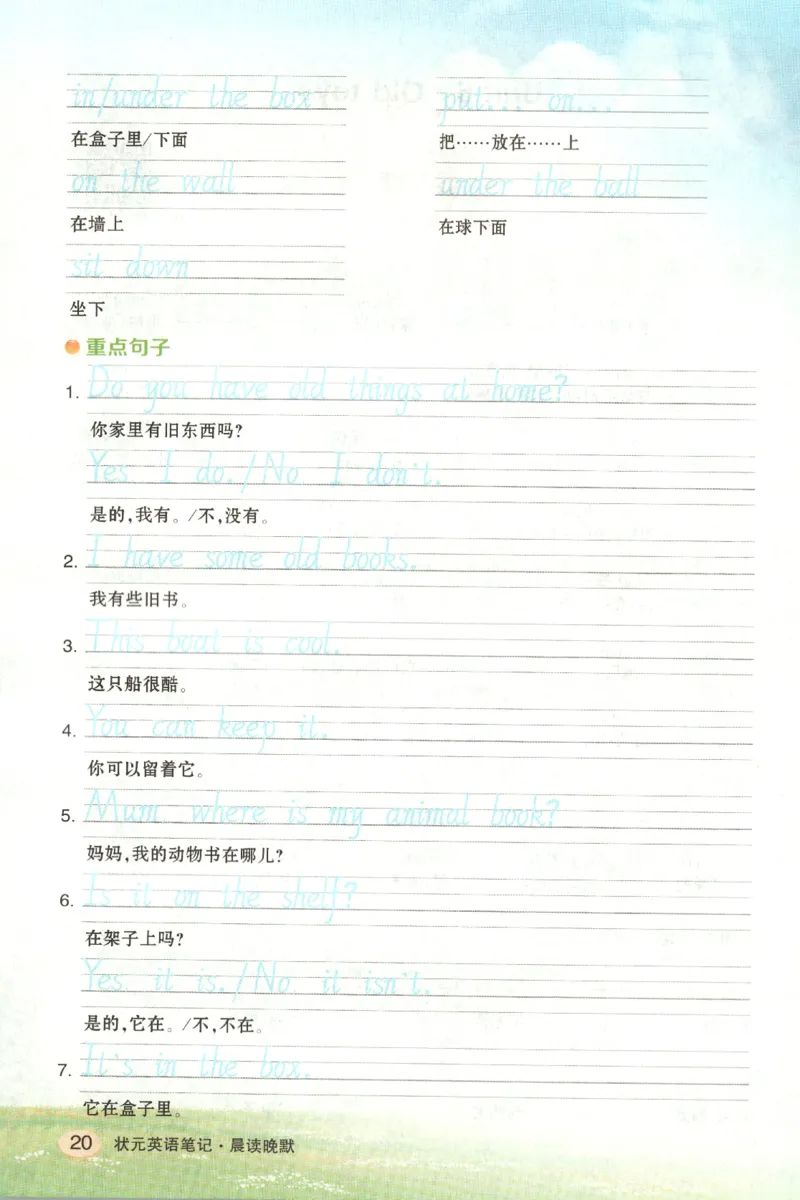 in/under the box
在盒子里/下面
on the wall
在墙上
sit down
坐下
put... on...
把……放在……上
under the ball
在球下面
重点句子
1. Do you have old things at home?
你家里有旧东西吗?
Yes I do./No I don't.
是的,我有。/不,没有。
2. I have some old books.
我有些旧书。
3. This boat is cool.
这只船很酷。
4. You can keep it.
你可以留着它。
5. Mum where is my animal book?
妈妈,我的动物书在哪儿?
6. Is it on the shelf?
在架子上吗?
Yes it is./No it isn't.
是的,它在。/不,不在。
7. It's in the box.
它在盒子里。
20 状元英语笔记·晨读晚默